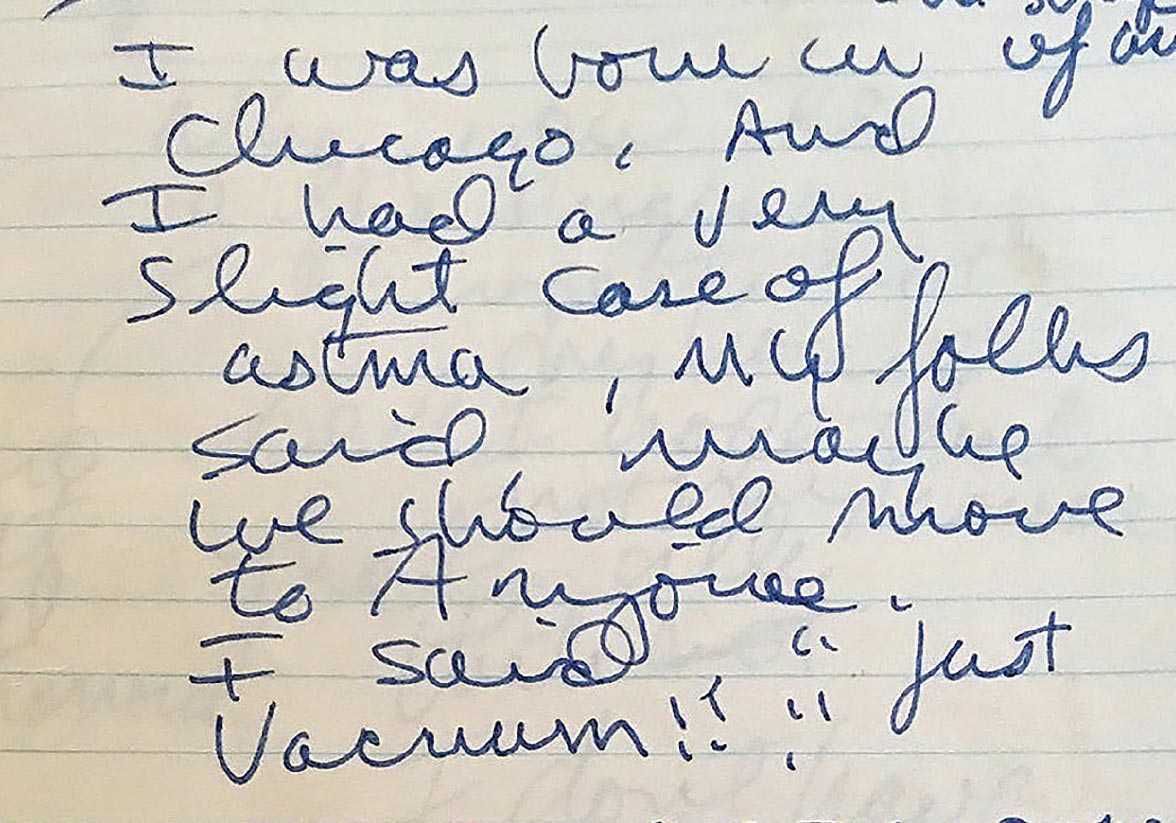 I was born in
Chicago. And
I had a very
slight case of
astma, my folks
said, maybe
we should move
to Arizona.
I said "just
Vacuum!! !!